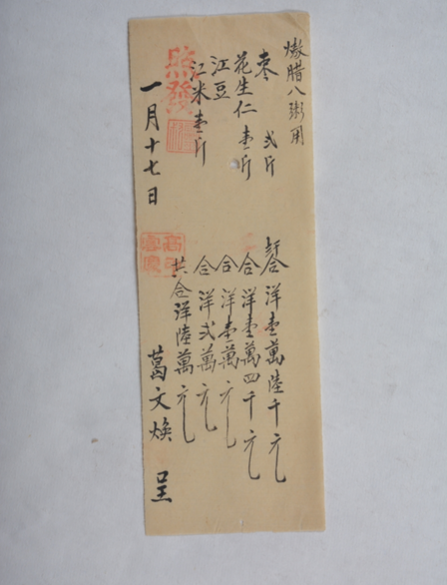 熬腊八粥用
枣 弍斤 計合洋壹萬陸千元
花生仁 壹斤 合洋壹萬四千元
江豆 合洋壹萬元
江米壹斤 合洋弍萬元
共合洋陸萬元
照發
一月十七日 葛文煥 呈